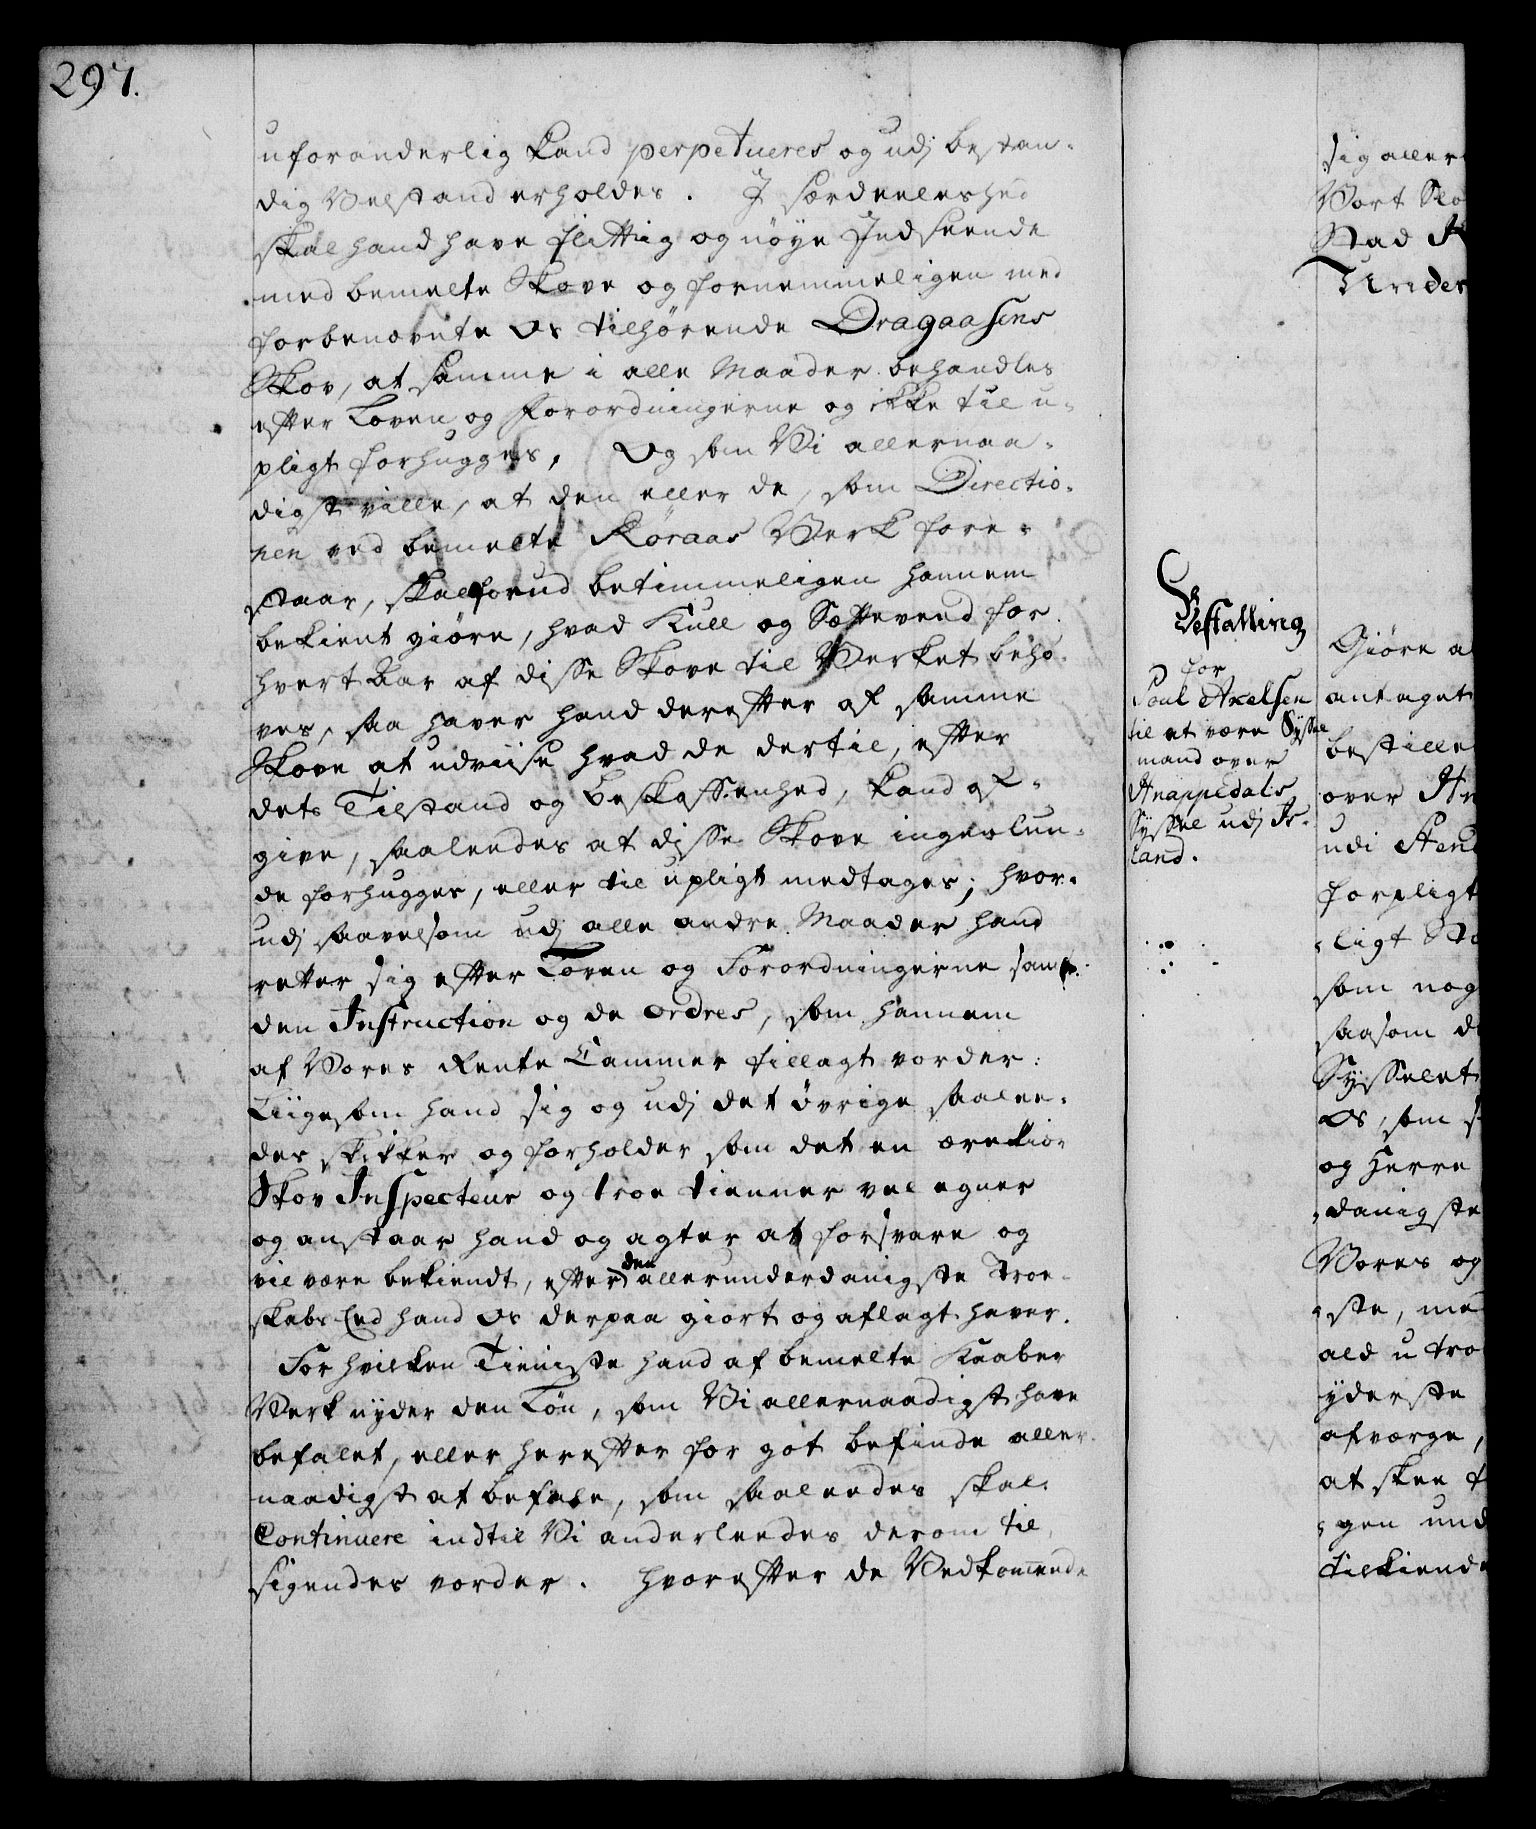 297.
uforanderlig kand perpetueres og udj bestan-
dig Velstand erholdes. I særdeeleshed
skal hand have flittig og nøye Indseende
med bemelte Skove og fornemmeligen med
forbenævnte Os tilhørende Dragaasens
Skov, at samme i alle Maader behandles
efter Loven og Forordningerne og ikke til u-
pligt forhugges, Og som Vi allernaa-
digst ville, at den eller de, som Directio-
nen ved bemelte Røraas Verk fore-
staar, skal forud betimmeligen hannem
bekient giøre, hvad Kull og Sættevend for
hvert Aar af disse Skove til Verket behø-
ves, saa haver hand derefter af samme
Skove at udviise hvad de dertil, efter
dets Tilstand og Beskaffenhed, kand af-
give, saaleedes at disse Skove ingenlun-
de forhugges, eller til upligt medtages; hvor-
udj saavelsom udj alle andre Maader hand
retter sig efter Loven og Forordningerne samt
den Instruction og de ordres, som hannem
af Vores Rente Cammer tillagt vorder:
Liigesom hand sig og udj det øvrige saalee-
des skikker og forholder som det en ærekiær
Skov Inspecteur og troe tienner vel egner
og anstaar hand og agter at forsvare og
vil være bekiendt, efter den allerunderdanigste Troe-
skabs Eed hand Os derpaa giort og aflagt haver.
For hvilken Tieniste hand af bemelte Kaaber
Verk nyder den Løn, som Vi allernaadigst have
befalet, eller herefter for got befinde aller-
naadigst at befale, som saaleedes skal
Continuere indtil Vi anderleedes derom til-
sigendes vorder. Hvorefter de Vedkommende
Bestalling
for
Poul Axelsen
til at være Syssel
mand over
Hnappedals
Syssel udj Is-
land.
sig aller
Vort Slo
Stad K
Under
Giøre al
antaget
bestille
over Hn
udi Hend
forpligt
ligt Sta
som nog
saasom d
Sysselet
Os, som s
og Herre
danigste
Vores og
ste, me
ald u tro
yderste
afværge,
at skee t
gen und
tilkiende